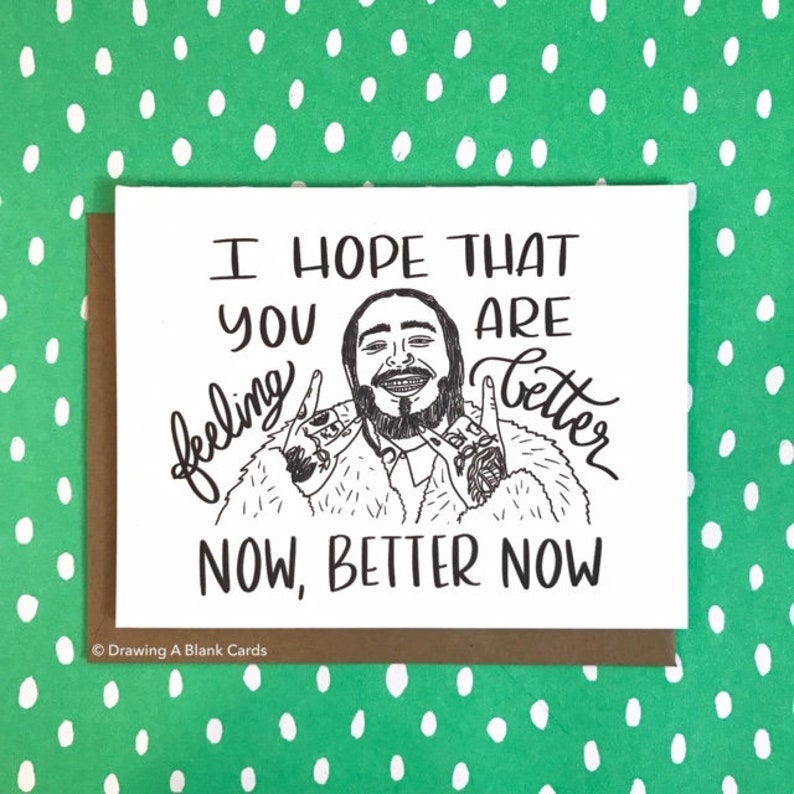 I HOPE THAT
YOU ARE
feeling better
NOW, BETTER NOW
© Drawing A Blank Cards